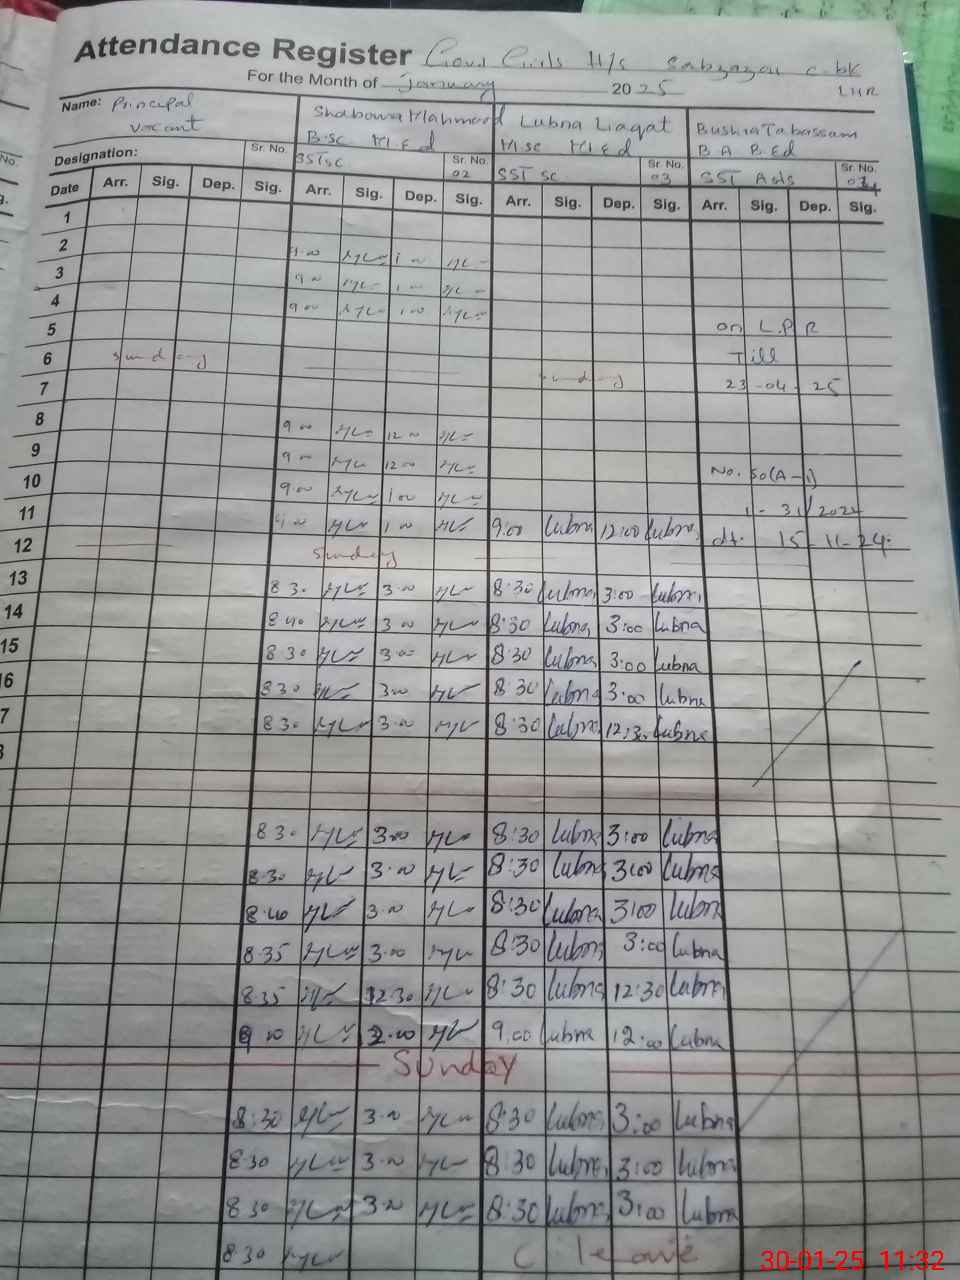 Attendance Register Govt Girls H/S Sabzazar c.bk
For the Month of January 2025 LHR
Name: Principal Shabana Mahmood Lubna Liaqat Bushra Tabassam
Vacant B.sc M.Ed M.sc M.Ed B.A B.Ed
Designation: Sr. No. SSTsc Sr. No. 02 SST sc Sr. No. 03 SST Arts Sr. No. 04
Date Arr. Sig. Dep. Sig. Arr. Sig. Dep. Sig. Arr. Sig. Dep. Sig. Arr. Sig. Dep. Sig.
1
2 9.00 1.00
3 9.00 1.00
4 9.00 1.00
5 on L.P.R
6 Sunday Sunday Till
7 23-04-25
8 9.00 12.00
9 9.00 12.00 No. SO(A-1)
10 9.00 1.00 1-31/2024
11 9.00 1.00 9:00 Lubna 12:00 Lubna dt. 15-11-24.
12 Sunday
13 8 30 3.00 8:30 Lubna 3:00 Lubna
14 8 40 3.00 8:30 Lubna 3:00 Lubna
15 8 30 3.00 8:30 Lubna 3:00 Lubna
16 8 30 3.00 8:30 Lubna 3:00 Lubna
7 8 30 3.00 8:30 Lubna 12:30 Lubna
8 30 3.00 8:30 Lubna 3:00 Lubna
8.30 3.00 8:30 Lubna 3:00 Lubna
8.40 3.00 8:30 Lubna 3:00 Lubna
8.35 3.00 8:30 Lubna 3:00 Lubna
8.35 12.30 8:30 Lubna 12:30 Lubna
9 00 2.00 9.00 Lubna 12:00 Lubna
Sunday
8:30 3.00 8:30 Lubna 3:00 Lubna
8 30 3.00 8:30 Lubna 3:00 Lubna
8 30 3.00 8:30 Lubna 3:00 Lubna
8 30 C leave
30-01-25 11:32